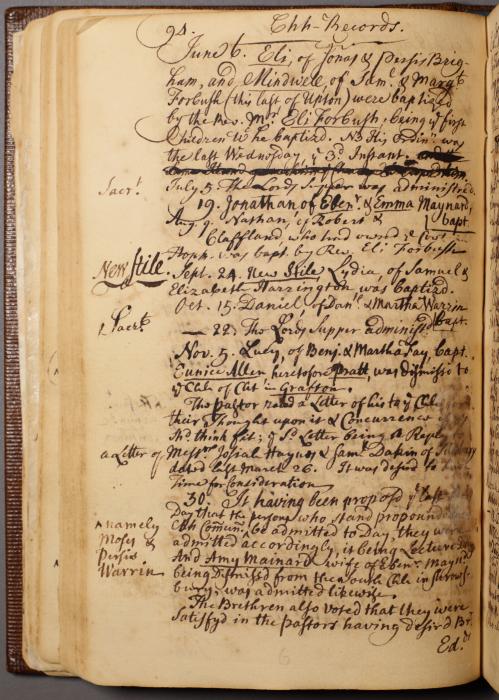 94. Chh-Records.
June 6. Eli, of Jonas & Persis Brig-
ham, and Mindwel, of Sam.l & Mary
Forbush (this last of Upton) were baptized
by the Rev. Mr. Eli Forbush; being ye first
Children he baptizd. NB His Ordin.n was
the last Wednesday, ye 3d Instant.
Sacr.t July 5. The Lords Supper was administred
19. Jonathan of Eben.r & Emma Maynard,
bapt.
Aug. 9. Nathan, of Robert &
Claffland, who had ownd ye
Steph. was bapt. by Rev. Eli Forbush
New Stile. Sept. 24. New Stile, Lydia, of Samuel &
Elizabeth Harrington was baptizd.
Oct. 15. Daniel, of Dan.l & Martha Warrin
bapt.
Sacrt — 22. The Lords Supper administd
Nov. 5. Lucy, of Benj. & Martha Fay, bapt.
Eunice Allen heretofore Pratt, was dismissd to
ye Chh of Cht in Grafton.
The Pastor read a Letter of his to ye Chh
their Thoughts upon it & Concurrence
shd think fit; ye sd Letter being a Reply
a Letter of Messrs Josiah Haynes & Sam.l Dakin of
dated last March 26. It was desird to
Time for Consideration
30. It having been proposd ye last
Day that the persons who stand propounded
^ namely Moses & Persis Warrin
Chh Comun.n ^ be admitted to Day, they were
admitted accordingly, it being Lecture Day
And Amy Mainard wife of Eben.r Mayn.d
being Dismissd from the Chh in Shrews-
bury, was admitted likewise.
The Brethren also voted that they were
Satisfyd in the Pastors having desir'd Br.
Ed.